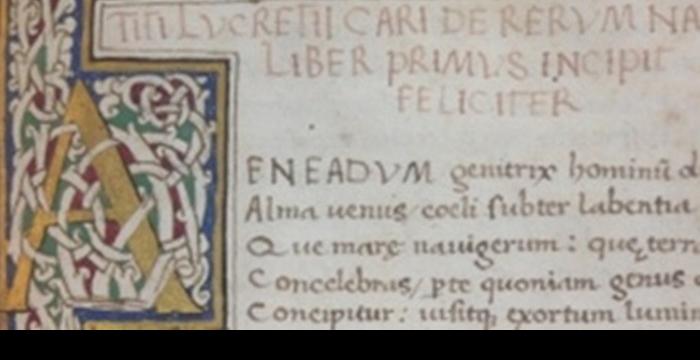 TITI LVCRETII CARI DE RERVM NA
LIBER PRIMVS INCIPIT
FELICITER
AENEADVM genitrix hominū d
Alma uenus/ coeli subter labentia
Que mare nauigerum: que terr
Concelebras/ pte quoniam genus
Concipitur: uisitq; exortum lumin